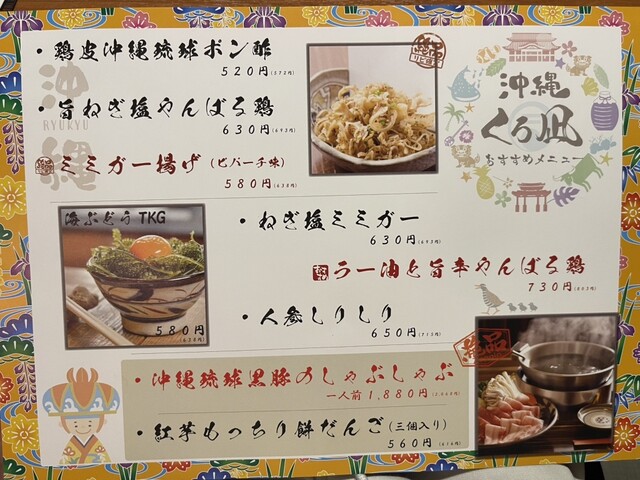 ・鶏皮沖縄琉球ポン酢
520円(572円)
・旨ねぎ塩やんばる鶏
630円(693円)
ミミガー揚げ(ピパーチ味)
580円(638円)
沖
RYUKYU
縄
沖縄
くろ凪
おすすめメニュー
海ぶどうTKG
580円
(638円)
・ねぎ塩ミミガー
630円(693円)
ラー油と旨辛やんばる鶏
730円(803円)
・人参しりしり
650円(715円)
絶品
・沖縄琉球黒豚のしゃぶしゃぶ
一人前1,880円(2,068円)
・紅芋もっちり餅だんご(三個入り)
560円(616円)